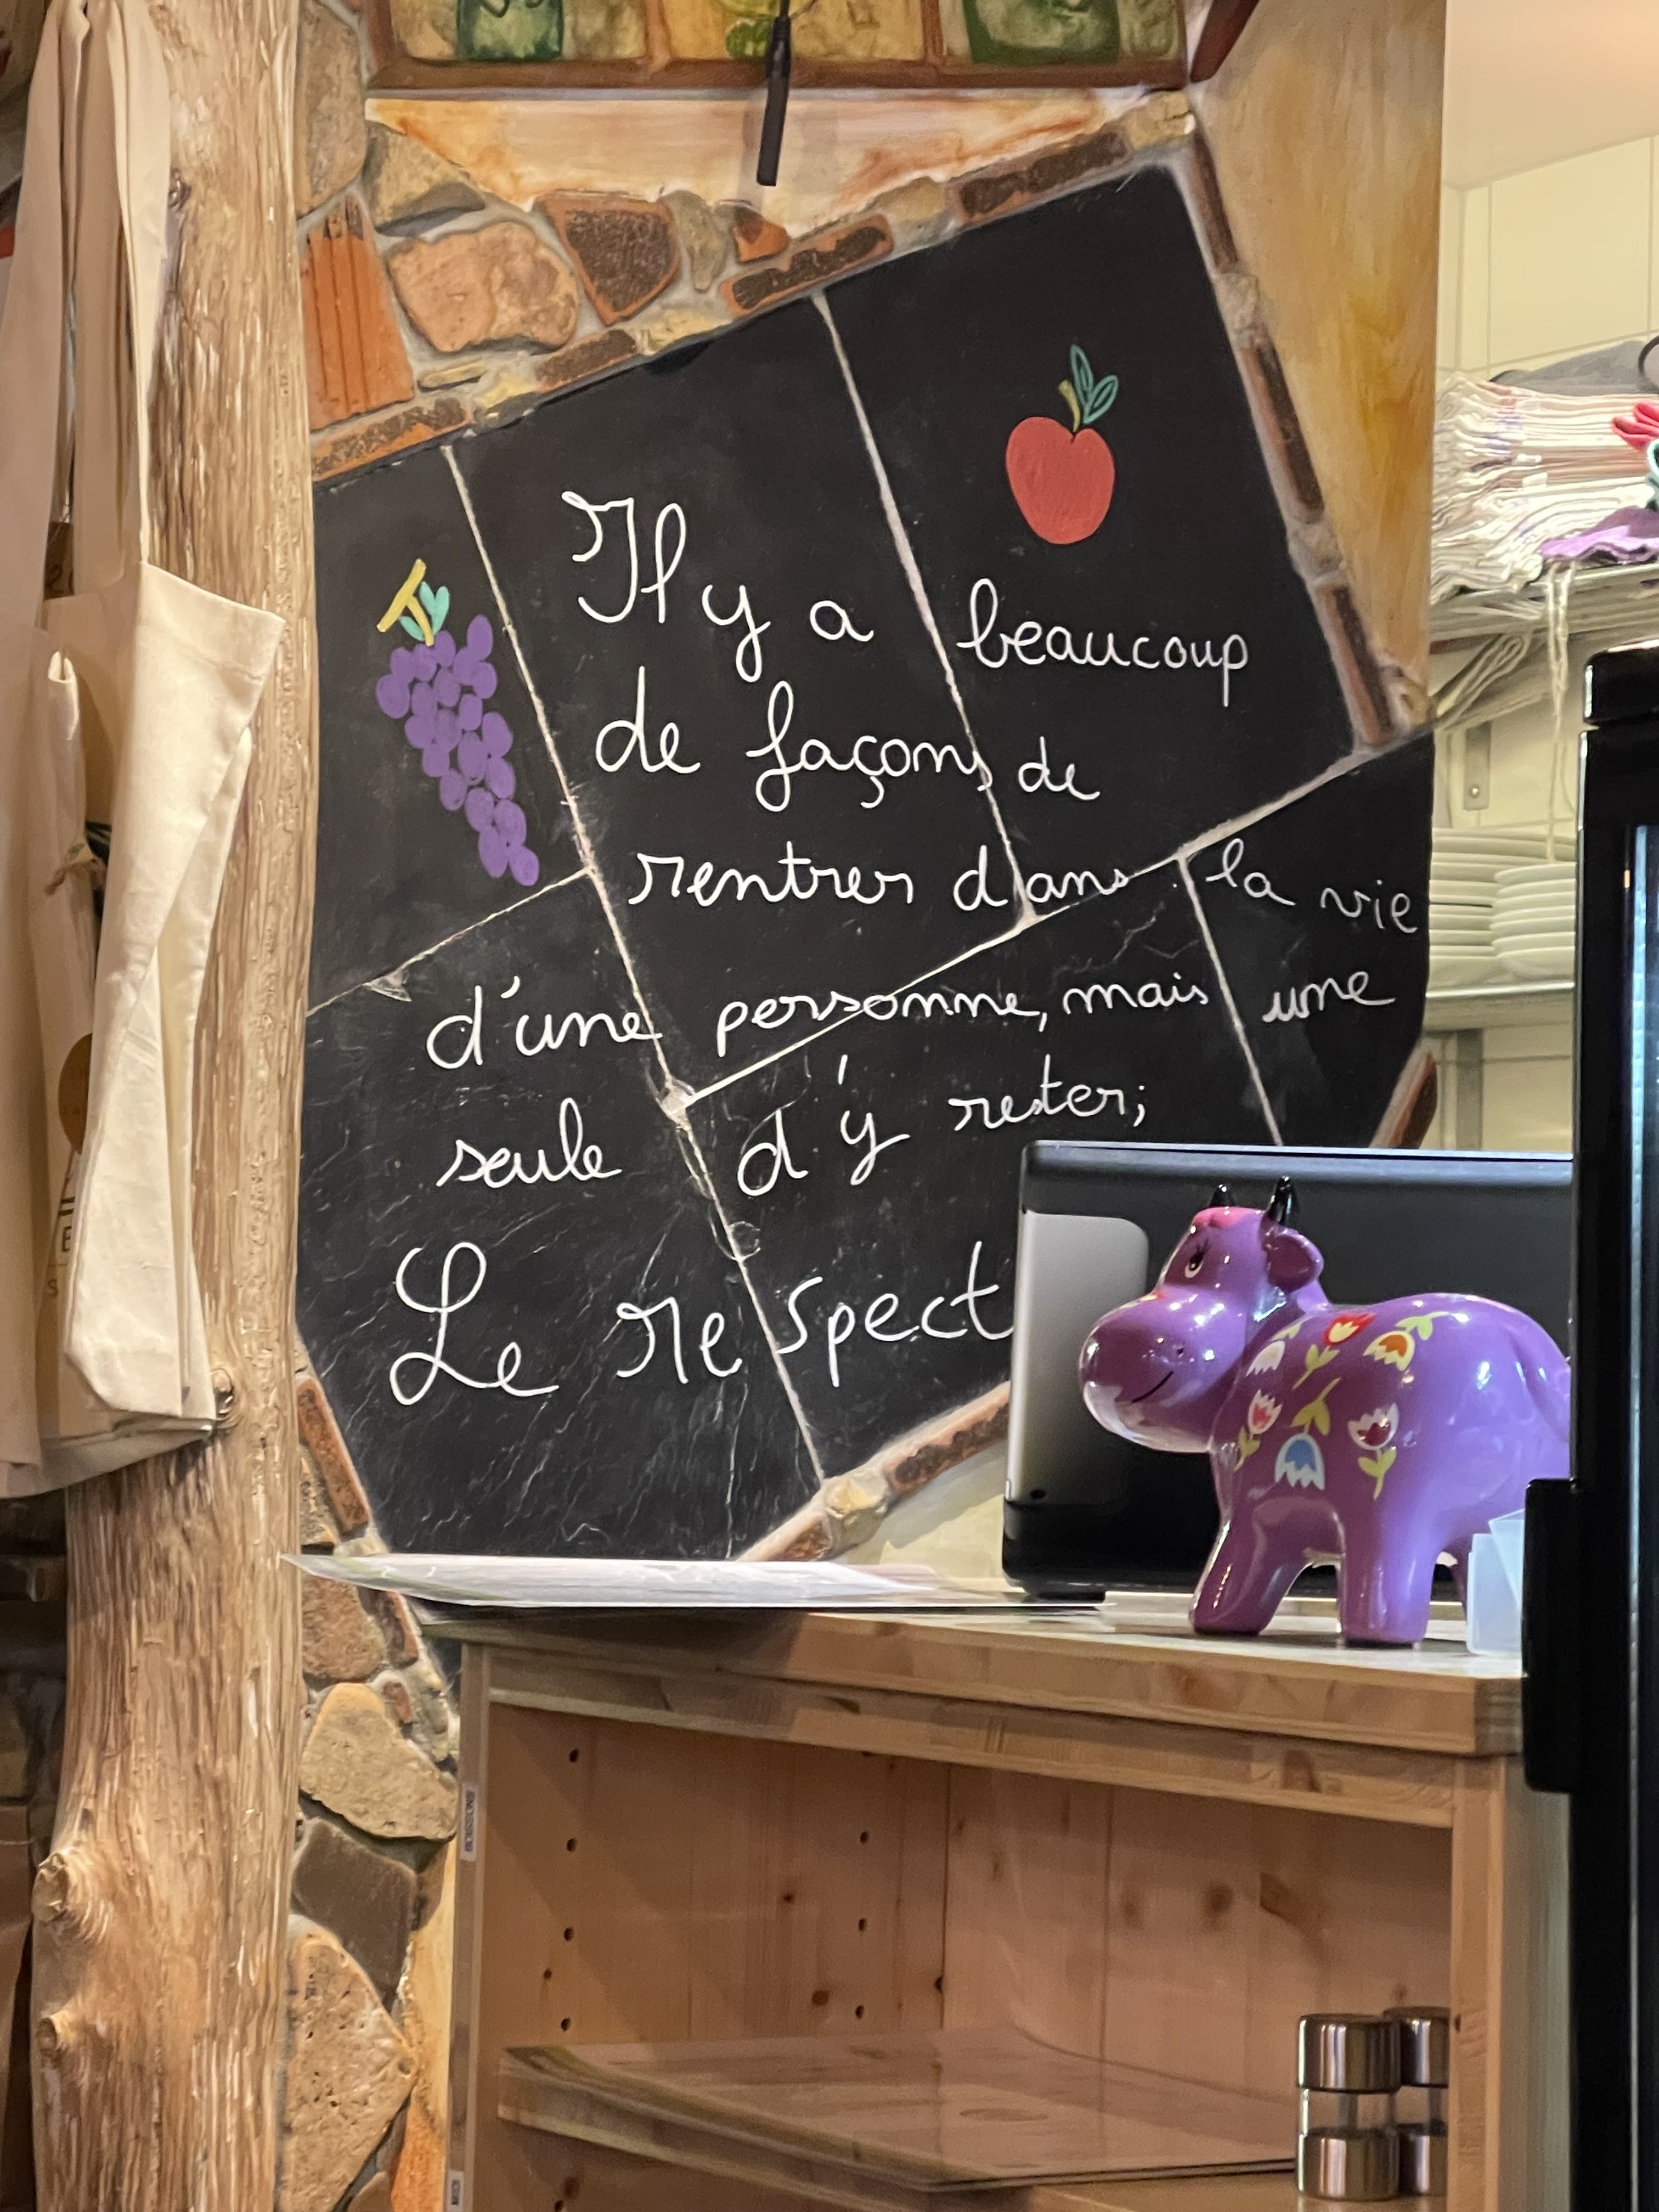 Il y a beaucoup
de façons de
rentrer dans la vie
d'une personne, mais une
seule d'y rester;
Le respect